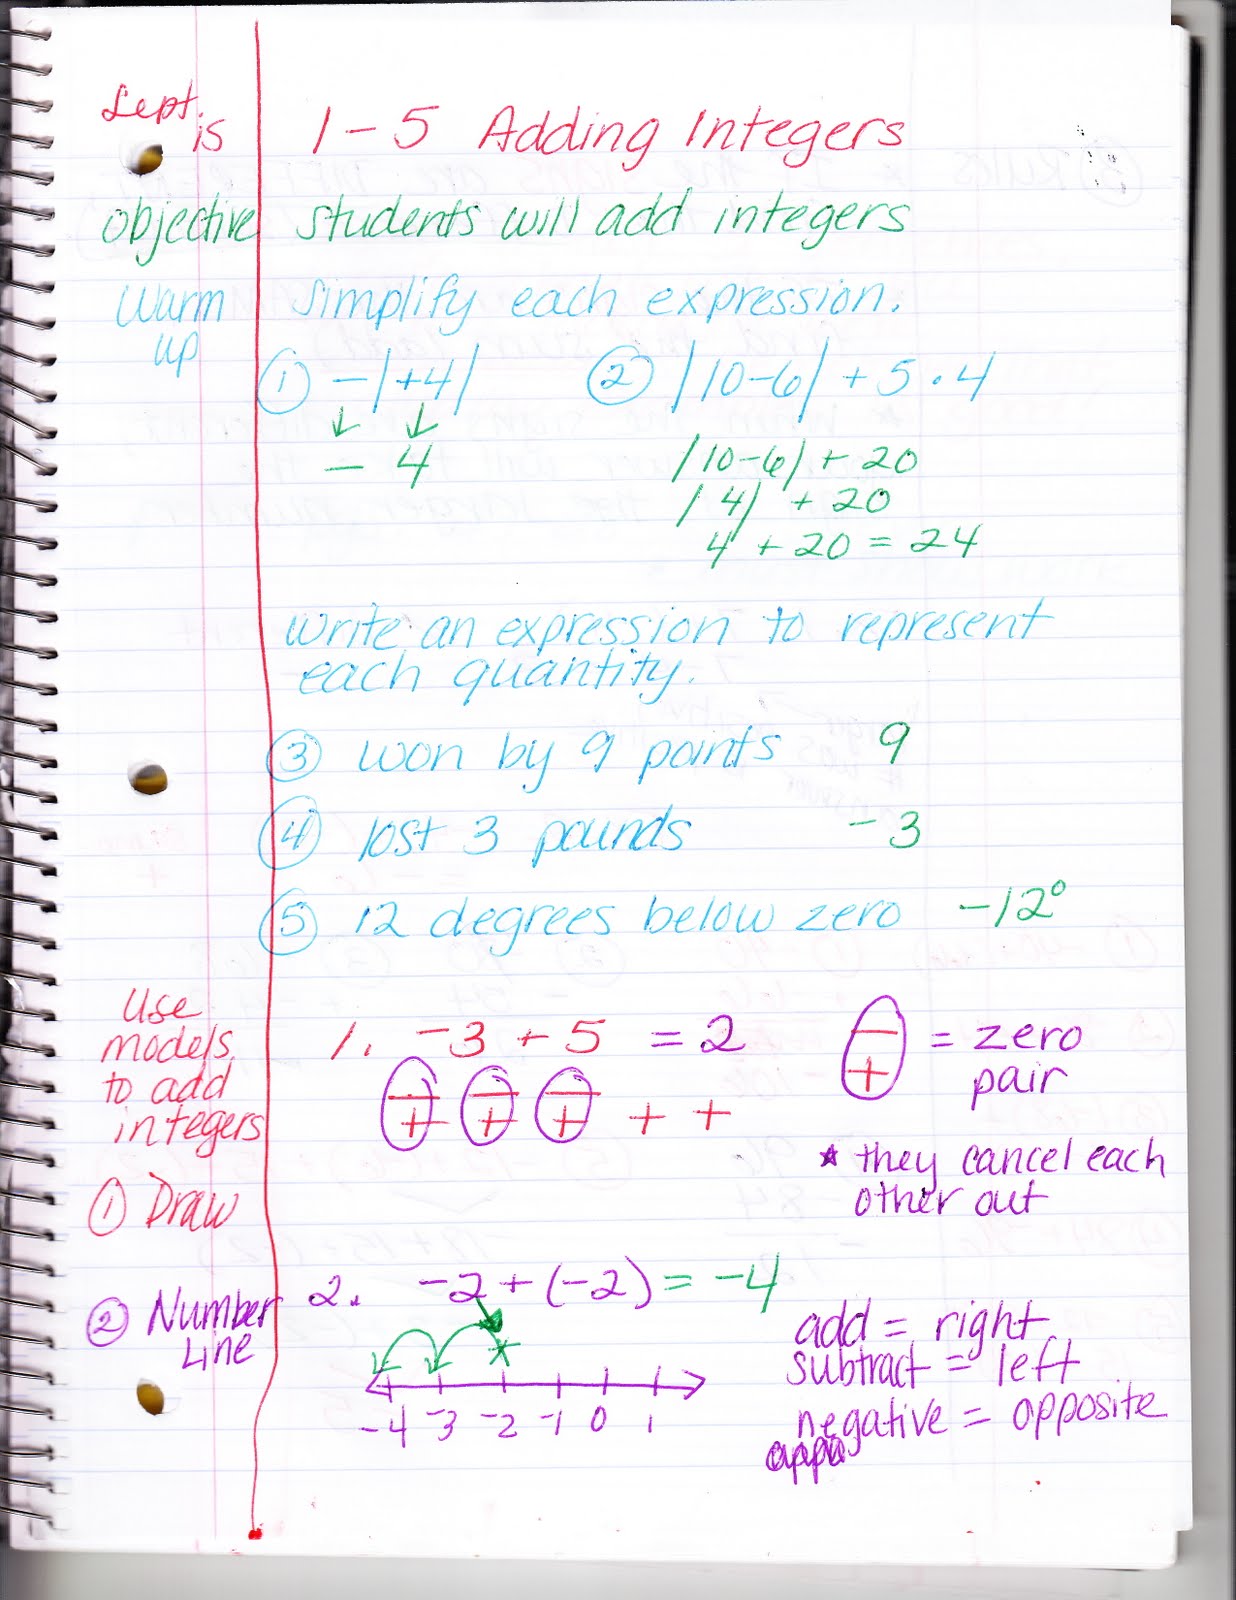 Sept. 15
1-5 Adding Integers
objective students will add integers
warm up
simplify each expression.
① -|+4| ② |10-6| + 5 · 4
↓ ↓
- 4
|10-6| + 20
|4| + 20
4 + 20 = 24
write an expression to represent
each quantity.
③ won by 9 points 9
④ lost 3 pounds -3
⑤ 12 degrees below zero -12°
Use
models
to add
integers
① Draw
1. -3 + 5 = 2
− − −
+ + + + +
− + = zero
pair
* they cancel each
other out
② Number
Line
2. -2 + (-2) = -4
-4 -3 -2 -1 0 1
add = right
subtract = left
negative = opposite
oppo